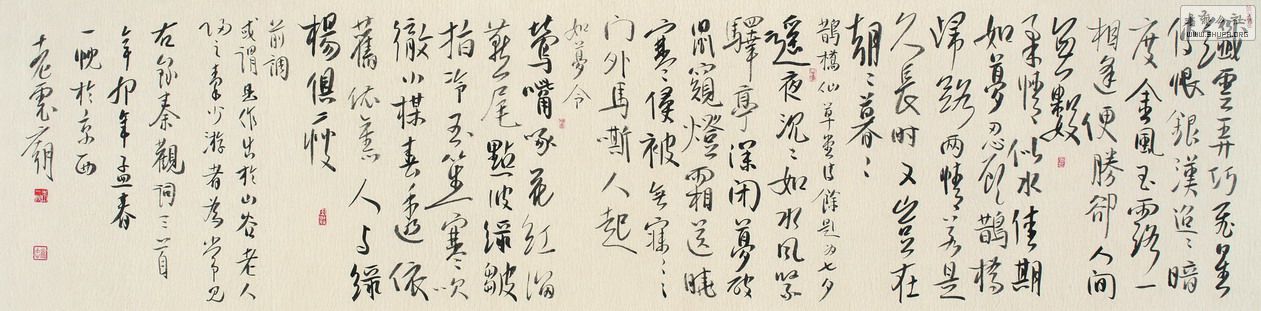 纖雲弄巧飛星
傳恨銀漢迢々暗
度金風玉露一
相逢便勝卻人間
無數
柔情似水佳期
如夢忍顧鵲橋
歸路兩情若是
久長時又豈在
朝々暮々
鵲橋仙草堂詩餘題為七夕
遥夜沉々如水風緊
驛亭深閉夢破
鼠窺燈霜送曉
寒侵被無寐々々
門外馬嘶人起
如夢令
鶯嘴啄花紅溜
燕尾點波綠皺
指冷玉笙寒吹
徹小樓春透依
舊依舊人与綠
楊俱瘦
前調
或謂此作出於山谷老人
歸之秦少游者為常見
右錄秦觀詞三首
辛卯年孟春
一晚於京西